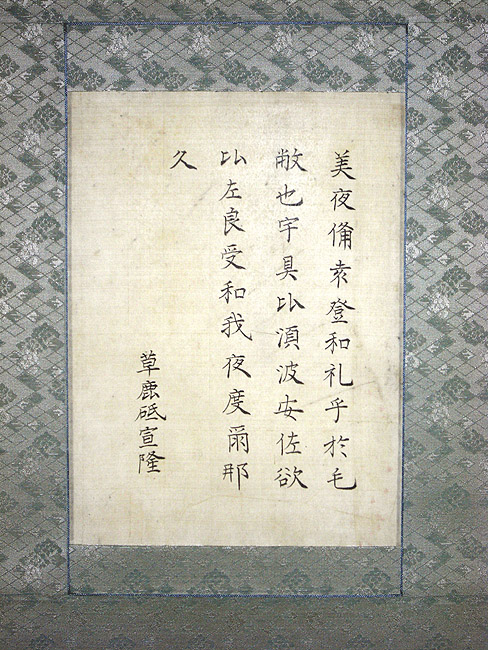 美夜備袁登和礼乎於毛
敝也宇具比須波安佐欲
比左良受和我夜度爾那
久
草鹿砥宣隆